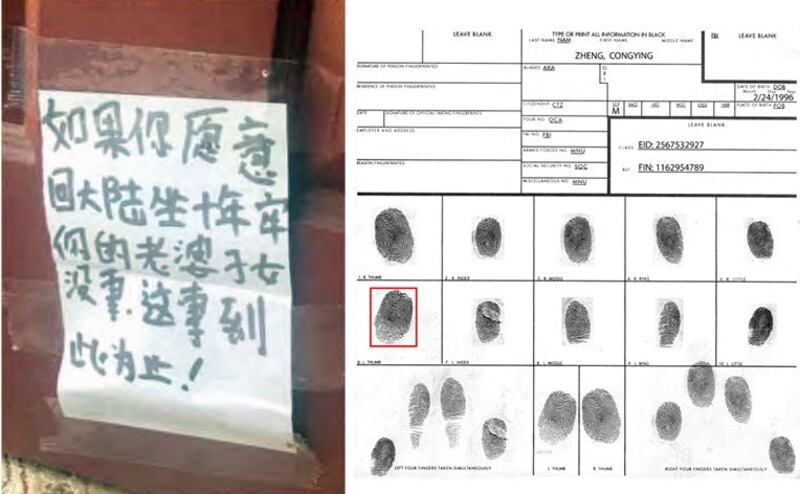 如果你愿意
回大陆坐十年牢
你的老婆子女
没事.这事到
此为止！
LEAVE BLANK
TYPE OR PRINT ALL INFORMATION IN BLACK
LAST NAME NAM FIRST NAME MIDDLE NAME
ZHENG, CONGYING
FBI
LEAVE BLANK
SIGNATURE OF PERSON FINGERPRINTED
ALIASES AKA
O
R
I
RESIDENCE OF PERSON FINGERPRINTED
DATE OF BIRTH DOB
Month Day Year
2/24/1996
CITIZENSHIP CTZ
SEX
M
RACE
HGT.
WGT.
EYES
HAIR
PLACE OF BIRTH POB
DATE
SIGNATURE OF OFFICIAL TAKING FINGERPRINTS
YOUR NO. OCA
LEAVE BLANK
EMPLOYER AND ADDRESS
FBI NO. FBI
CLASS EID: 2567532927
ARMED FORCES NO. MNU
REASON FINGERPRINTED
SOCIAL SECURITY NO. SOC
REF. FIN: 1162954789
MISCELLANEOUS NO. MNU
1. R. THUMB
2. R. INDEX
3. R. MIDDLE
4. R. RING
5. R. LITTLE
6. L. THUMB
7. L. INDEX
8. L. MIDDLE
9. L. RING
10. L. LITTLE
LEFT FOUR FINGERS TAKEN SIMULTANEOUSLY
L. THUMB
R. THUMB
RIGHT FOUR FINGERS TAKEN SIMULTANEOUSLY